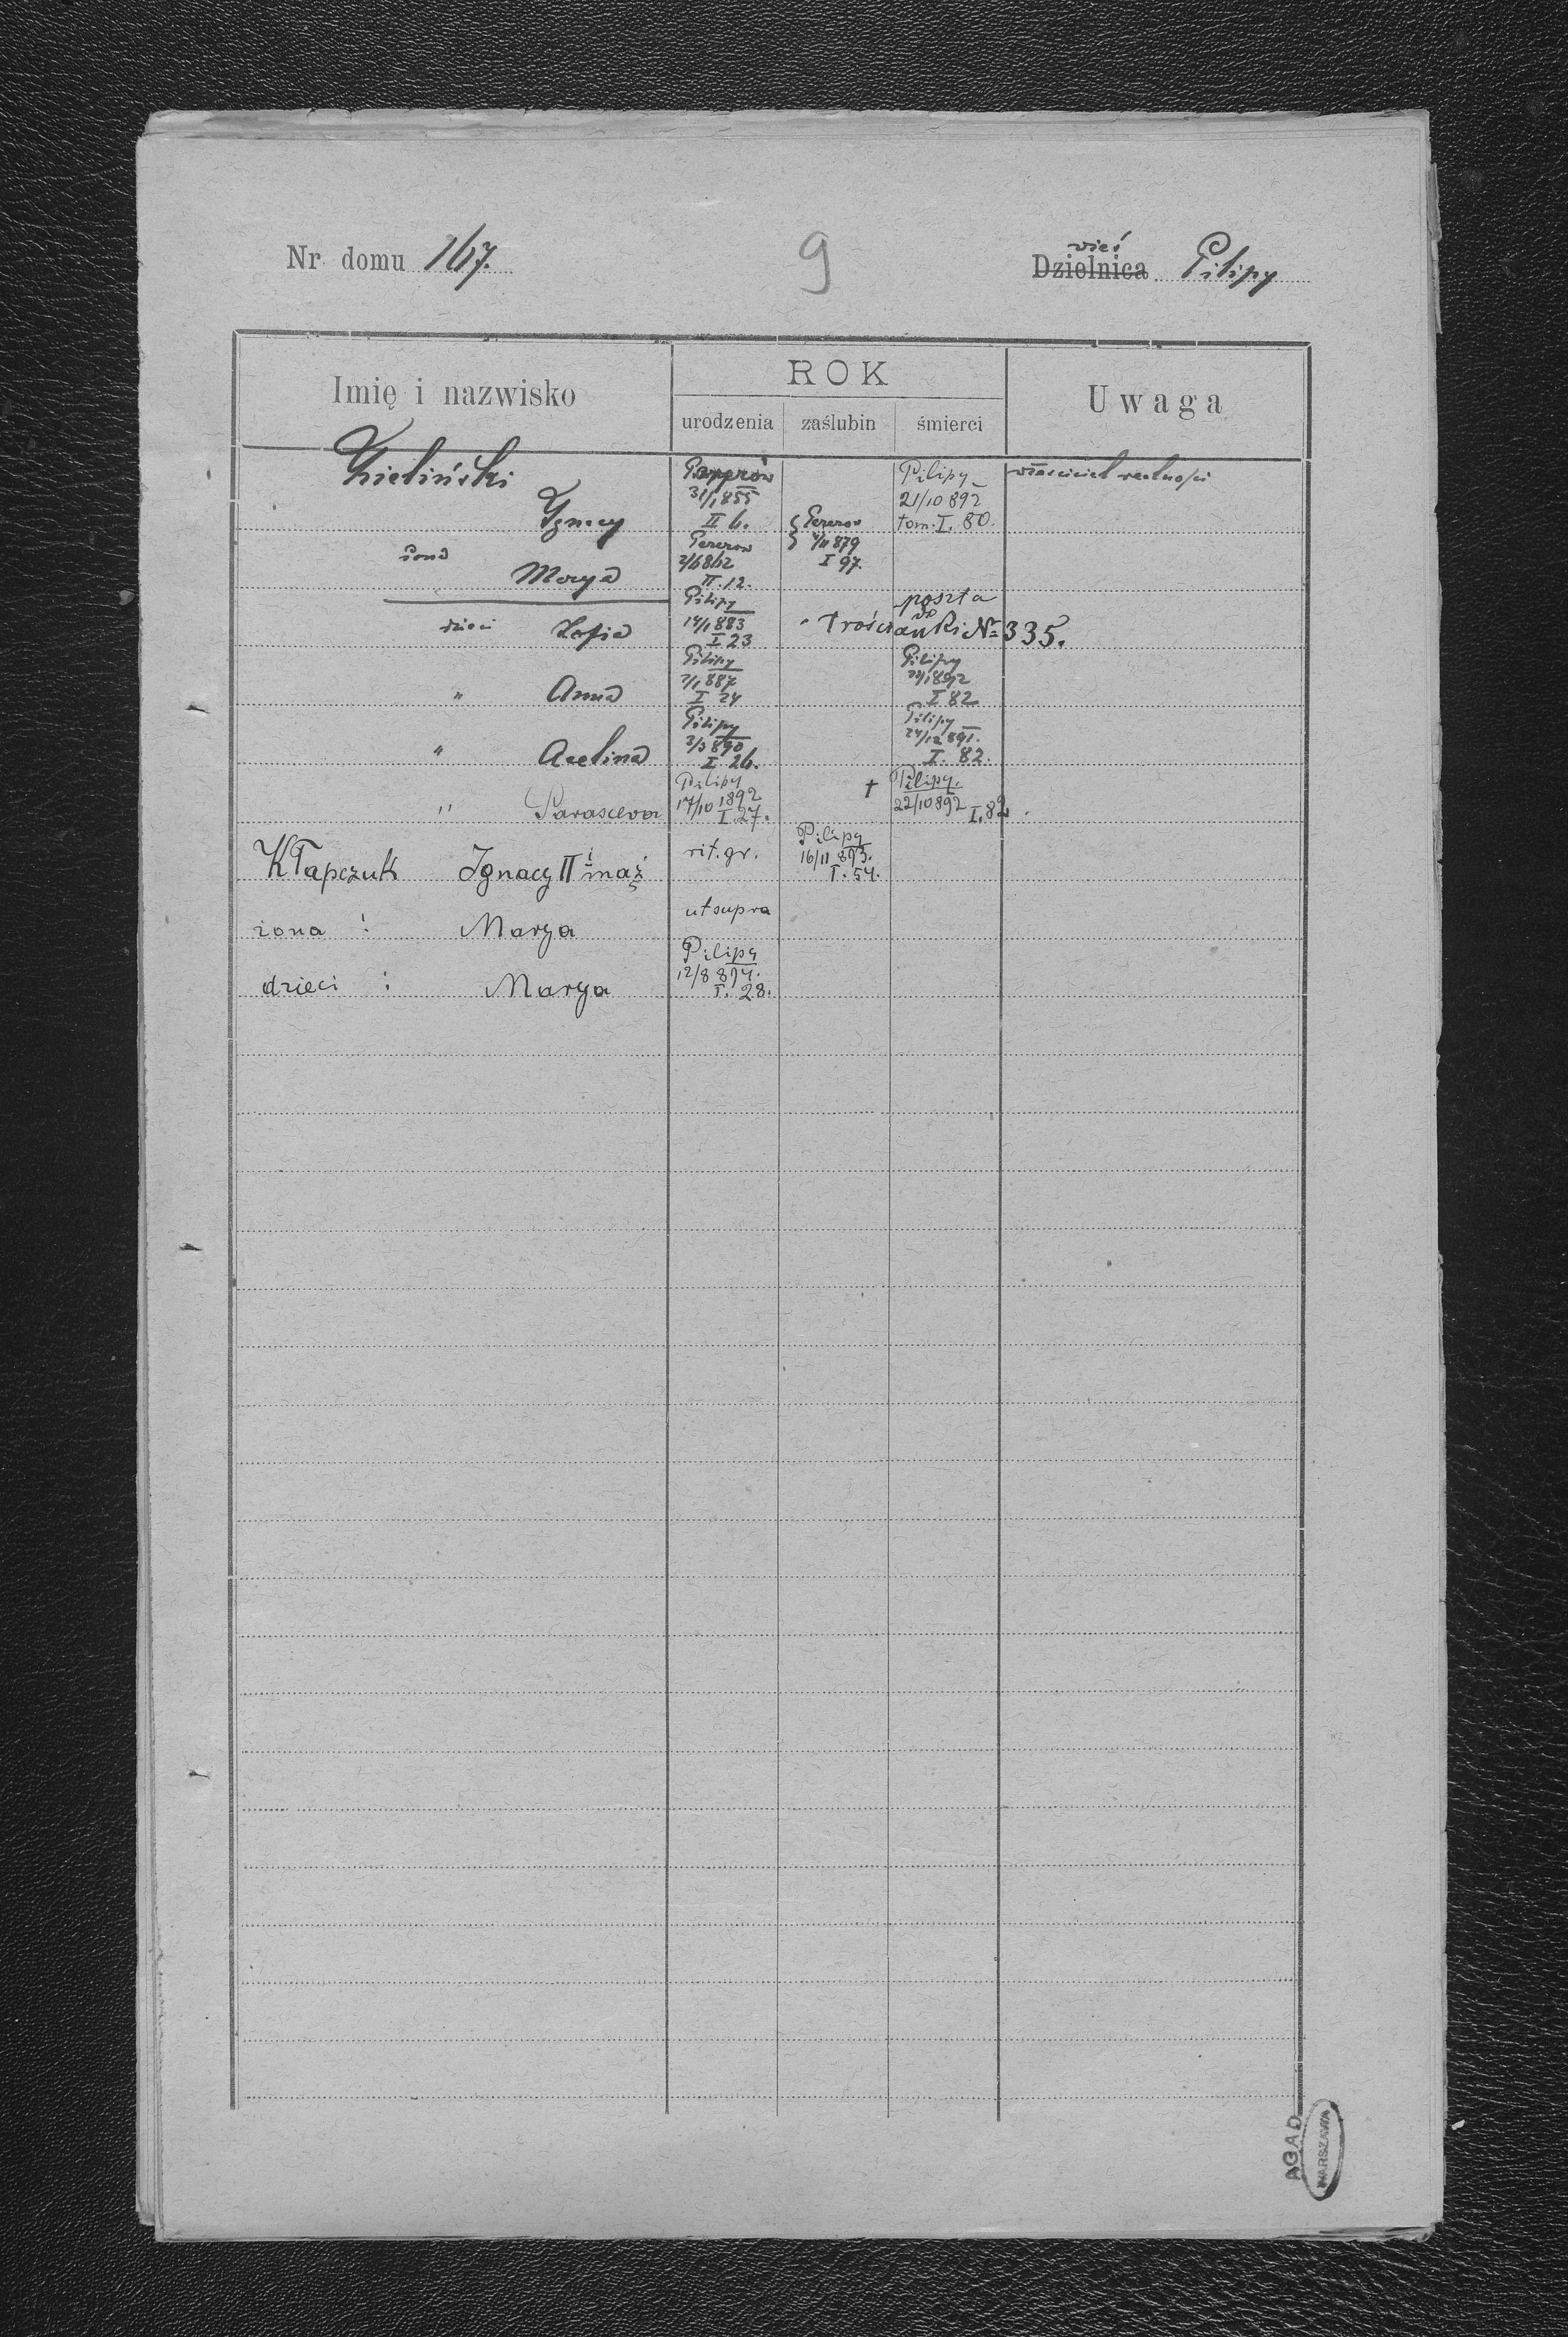 Nr domu 167.
9
wieś
Dzielnica Pilipy
Imię i nazwisko
ROK
urodzenia
zaślubin
śmierci
Uwaga
Zieliński
Ignacy
31/1 855
II 6.
Pererow
4/11 879
I 97.
Pilipy
21/10 892
tom. I. 80.
właściciel realności
żona
Marya
Pererow
2/6 862
II. 12.
dzieci Zofia
Pilipy
14/1 883
I 23
poszła
do
Trościanki № 335.
" Anna
Pilipy
7/1 887
I 24
Pilipy
892
I 82
" Acelina
Pilipy
3/3 890
I 26.
Pilipy
24/12 891.
I. 82.
" Parasceva
Pilipy
17/10 1892
I 27.
† Pilipy.
22/10 892
I. 82.
Kłapczuk Ignacy II i mąż
rit. gr.
Pilipy
16/11 893.
I. 54.
żona : Marya
ut supra
dzieci : Marya
Pilipy
12/8 894.
I. 28.
AGAD
WARSZAWA